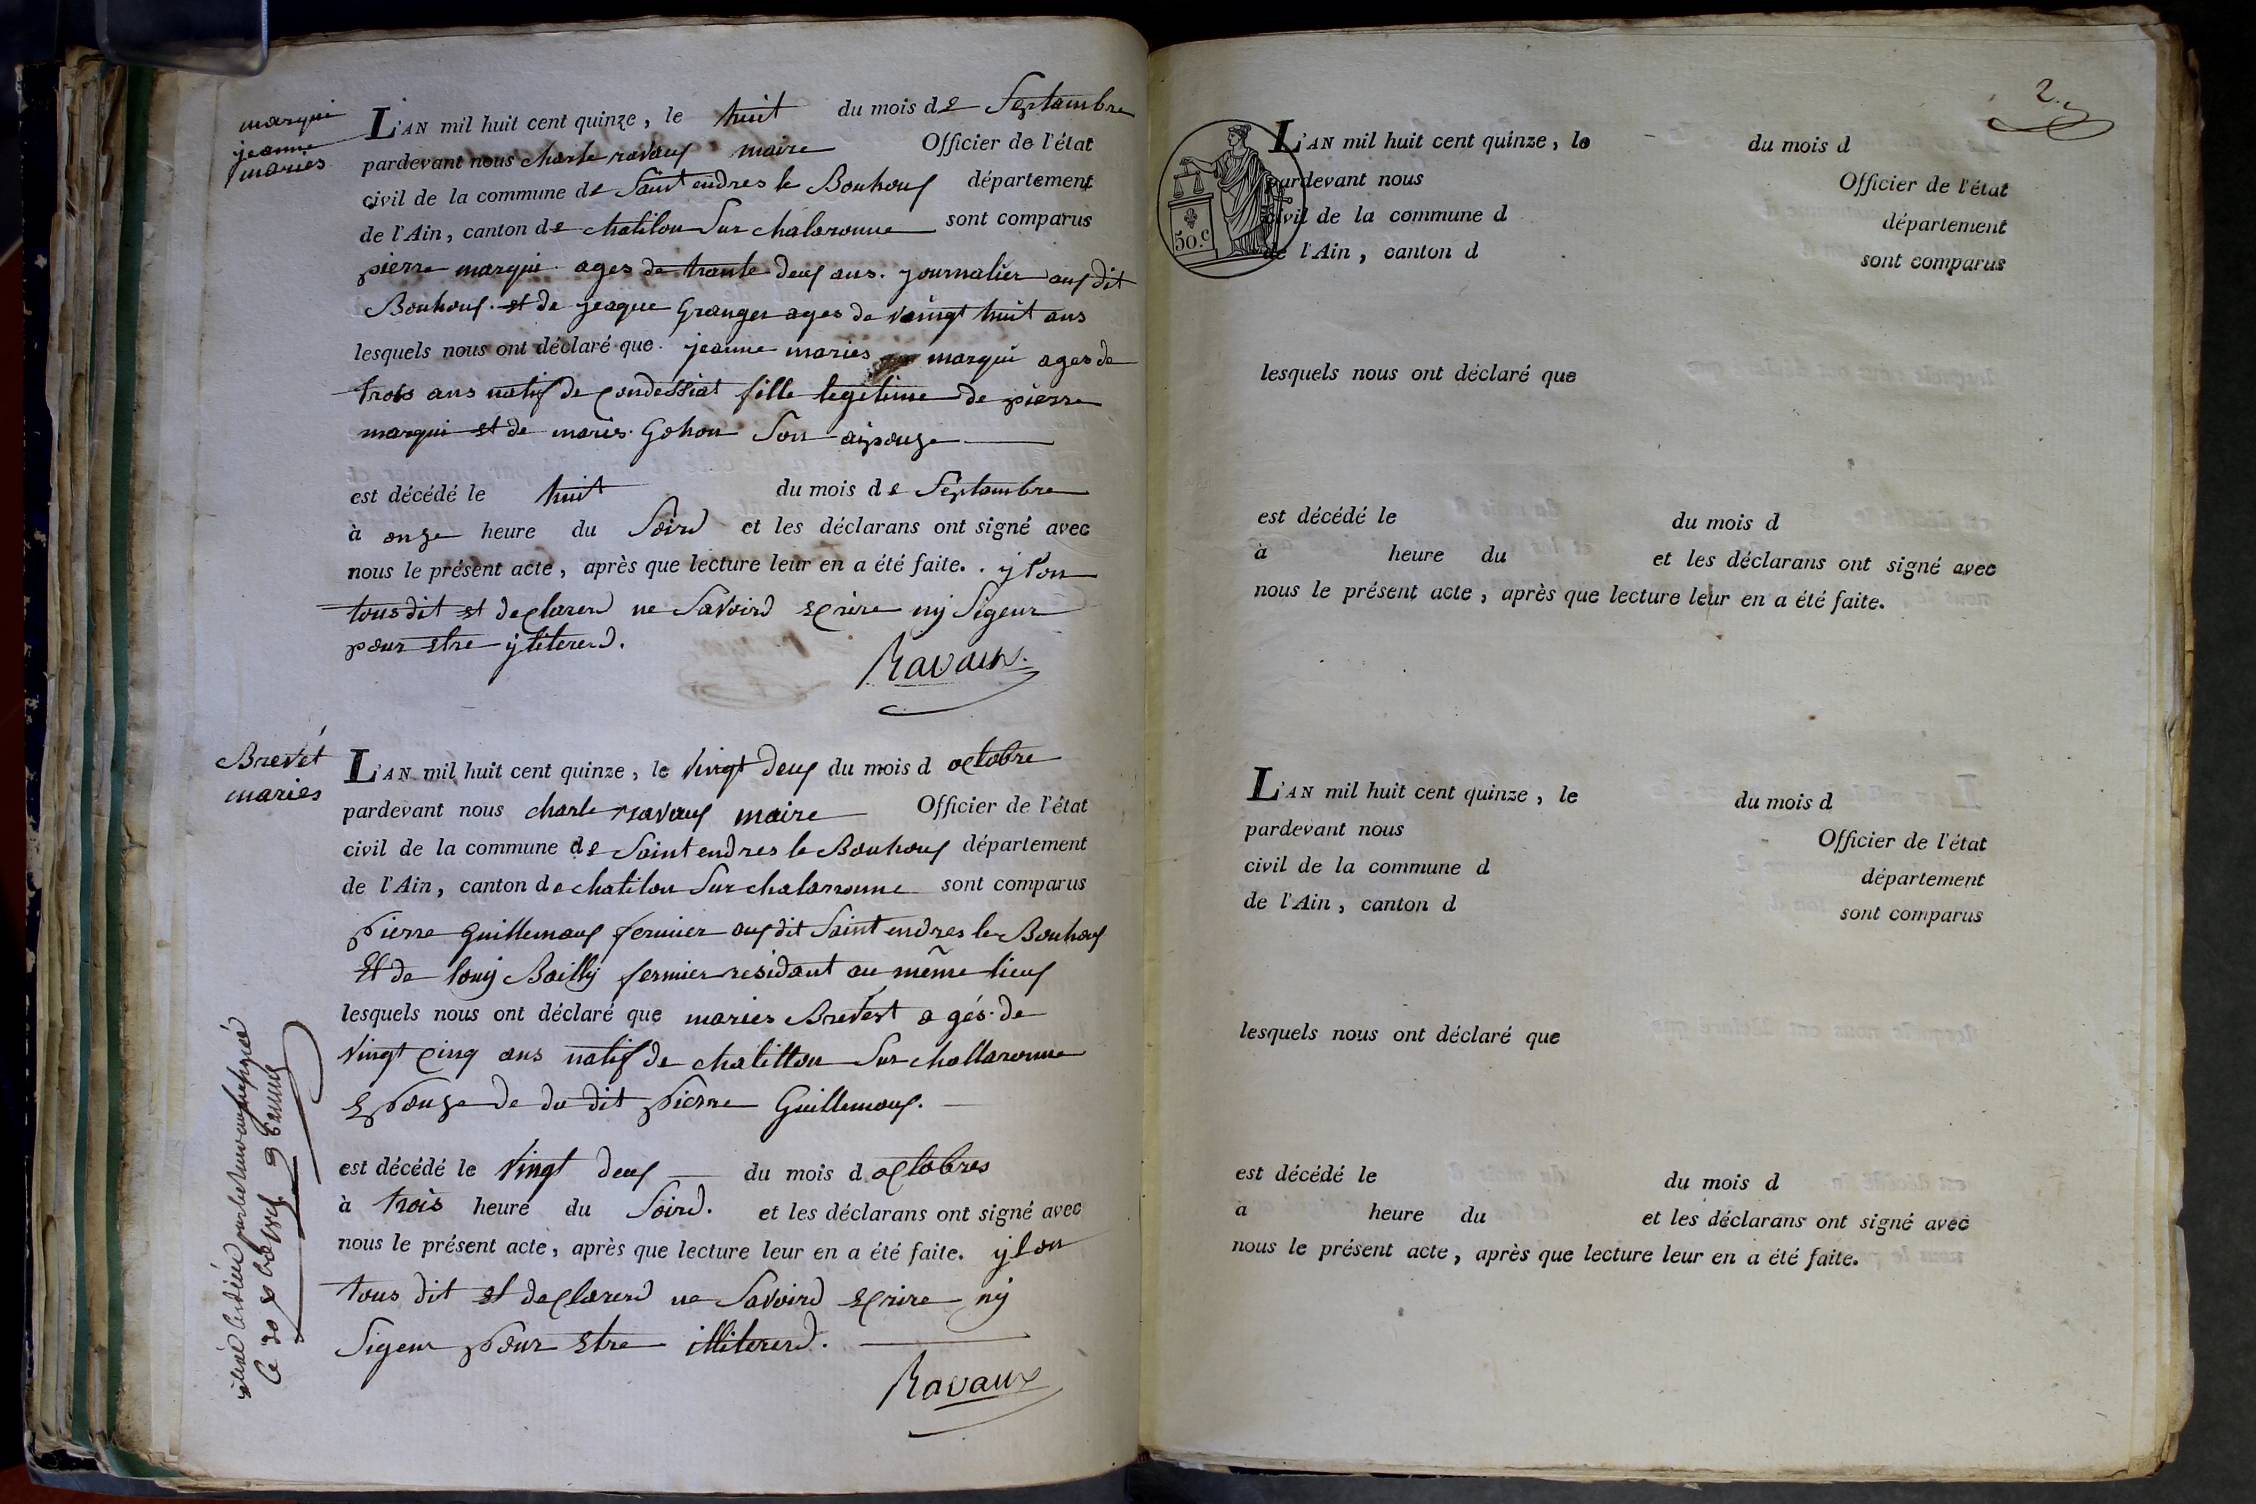 marqui
jeanne
maries
L'AN mil huit cent quinze, le huit du mois de Septambre
pardevant nous charle ravaux maire Officier de l'état
civil de la commune de Saint endres le Bouhoux département
de l'Ain, canton de chatilon Sur chalaronne sont comparus
pierre marqui ages de trante deux ans. journalier aux dit
Bouhoux. et de jeaque Granger ages de vaingt huit ans
lesquels nous ont déclaré que jeanne maries marqui ages de
trois ans natif de condessiat fille legitime de pierre
marqui et de maries Gohon Son aipouze
est décédé le huit du mois de Septambre
à onze heure du Soird et les déclarans ont signé avec
nous le présent acte, après que lecture leur en a été faite. . y l'on
tous dit et declarerd ne Savoird ecrire ny Sigeur
pour etre yliterерd.
Ravaux.
Brevet
maries
L'AN mil huit cent quinze, le vingt deux du mois d octobre
pardevant nous charle ravaux maire Officier de l'état
civil de la commune de Saint endres le Bouhoux département
de l'Ain, canton de chatilon Sur chalaronne sont comparus
pierre guillemoux fermier aux dit Saint endres le Bouhoux
Et de louy Bailly fermier residant au même lieux
lesquels nous ont déclaré que maries Brevert agés de
vingt cinq ans natif de chatillon Sur challaronne
Epouze de du dit pierre Guillemoux.
est décédé le vingt deux du mois d octobres
à trois heure du Soird. et les déclarans ont signé avec
nous le présent acte, après que lecture leur en a été faite. y l'on
tous dit et declarerd ne Savoird ecrire ny
Sigeur pour etre illitererd.
Ravaux
2.
50.c
L'AN mil huit cent quinze, le du mois d
pardevant nous Officier de l'état
civil de la commune d département
de l'Ain, canton d sont comparus
lesquels nous ont déclaré que
est décédé le du mois d
à heure du et les déclarans ont signé avec
nous le présent acte, après que lecture leur en a été faite.
L'AN mil huit cent quinze, le du mois d
pardevant nous Officier de l'état
civil de la commune d département
de l'Ain, canton d sont comparus
lesquels nous ont déclaré que
est décédé le du mois d
à heure du et les déclarans ont signé avec
nous le présent acte, après que lecture leur en a été faite.